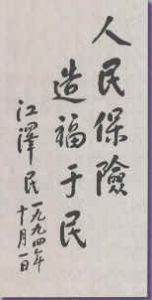 人民保險
造福于民
江澤民
一九九四年
十月一日